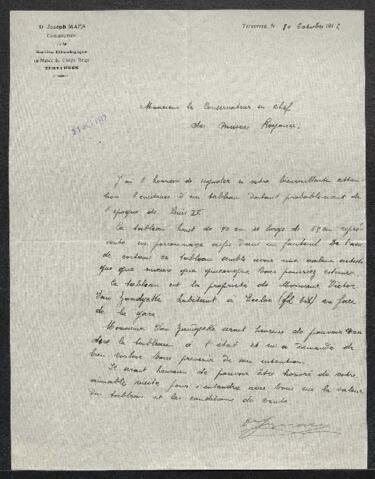 Dr Joseph MAES
Conservateur
de la
Section Ethnographique
au Musée du Congo Belge
TERVUEREN
Tervueren, le 30 Octobre 191
Monsieur le Conservateur en chef
des Musées Royaux.
J'ai l'honneur de signaler à votre bienveillante atten-
tion l'existence d'un tableau datant probablement de
l'époque de Louis XV.
Ce tableau haut de 90 cm et large de cm repré
sente un personnage assis dans un fauteuil. De l'avis
de certains ce tableau semble avoir une valeur artisti
que que mieux que quiconque vous pourriez estimer.
Le tableau est la propriété de Monsieur Victor
Van habitant à en face
de la gare.
Monsieur Van serait heureux de pouvoir ven
dre le tableau à l'état et m'a demandé de
bien vouloir vous prévenir de son intention.
Il serait heureux de pouvoir être honoré de votre
aimable visite pour s'entendre avec vous sur la valeur
du tableau et les conditions de vente.